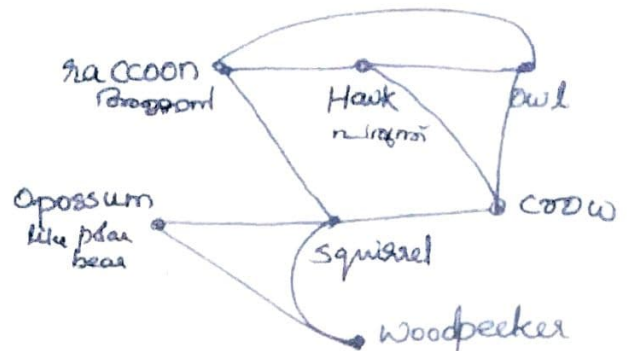 raccoon
Hawk
owl
opossum
like polar
bear
squirrel
crow
woodpecker